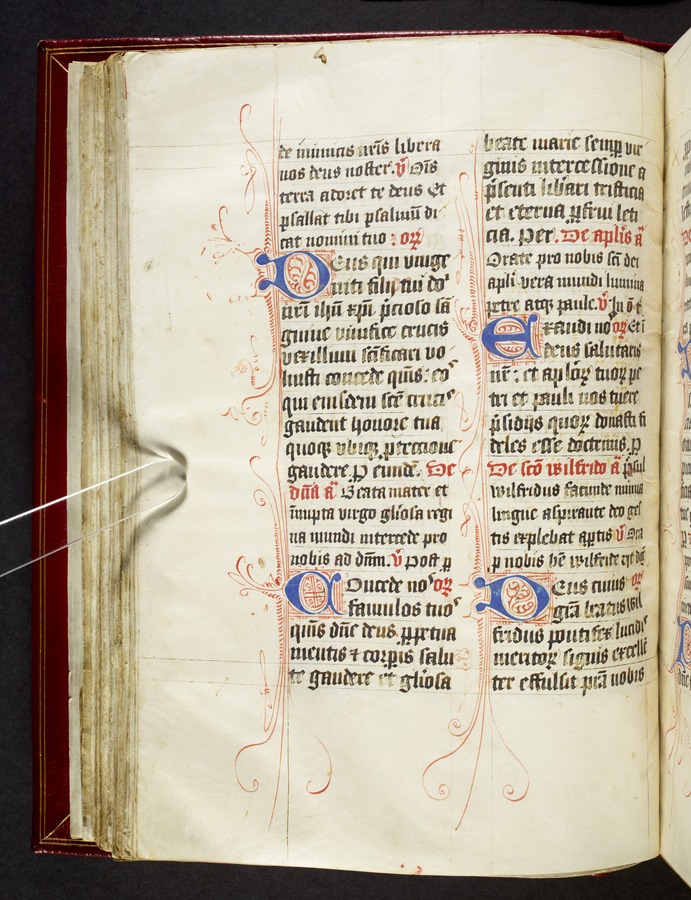 de inimicis nr̄is libera
nos deus noster. v̄ Oīs
terra adoret te deus Et
psallat tibi psalmū di
cat nomini tuo : oꝝ
Deus qui vnige
niti filij tui do
nr̄i ihū xp̄i p̄cioso sā
guine viuifice crucis
vexillum sc̄ificari vo
luisti concede qūs : eoꝰ
qui eiusdem scē crucis
gaudent honore tua
quoqꝫ vbiqꝫ ꝓtectione
gaudere ꝑ eundē. De
dn̄a ā Beata mater et
īnupta virgo gl̄iosa regi
na mundi intercede pro
nobis ad dn̄m. v̄ Post ꝑ
Concede noꝰ oꝝ
famulos tuoꝰ
qūs dn̄e deus ꝑpetua
mentis ⁊ corꝑis salu
te gaudere et gl̄iosa
beate marie semꝑ vir
ginis intercessione a
p̄senti lib̄ari tristicia
et eterna ꝑfrui leti
cia. Per. De apl̄is ā
Orate pro nobis sc̄i dei
apl̄i vera mundi lumina
petre atqꝫ paule. v̄ In ō t̄
Exaudi no oꝝ
deus salutaris
nr̄ : et apl̄oꝝ tuoꝝ pe
tri et pauli nos tuere
p̄sidijs quoꝝ donasti fi
deles esse doctrinis. ꝑ
De sc̄o wilfrido ā p̄sul
wilfridus facunde
lingue aspirante deo gel
tis explebat aꝑtis v̄ Ora
ꝑ nobis bē wilfride
Deus cuius oꝝ
gr̄a beatus wil
fridus pontifex
meritoꝝ signis excellē
ter effulsit p̄sta nobis